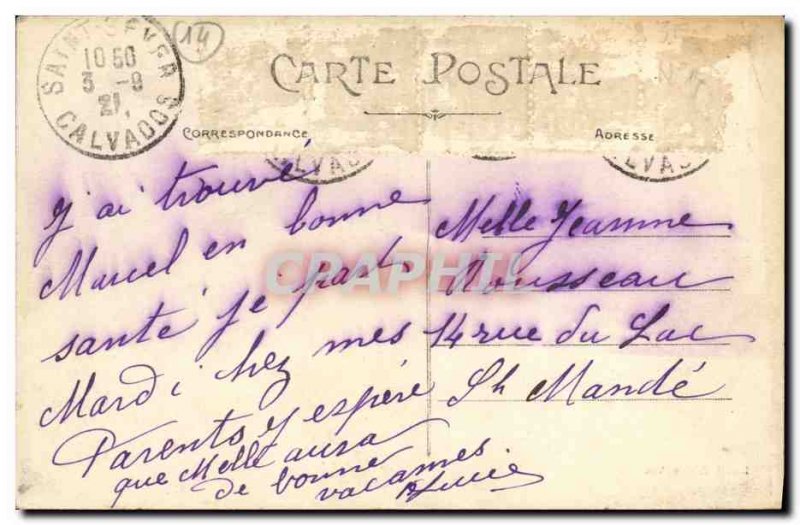 SAINT-SEVER
10 50
3 -8
21
CALVADOS
14
CARTE POSTALE
CORRESPONDANCE
ADRESSE
J'ai trouvé
Marcel en bonne
santé je part
Mardi chez mes
Parents j'espère
que Melle aura
de bonne
vacances
Lucie
Melle Jeanne
Rousseau
14 rue du Lac
St Mandé
CRAPHIL
LVADO